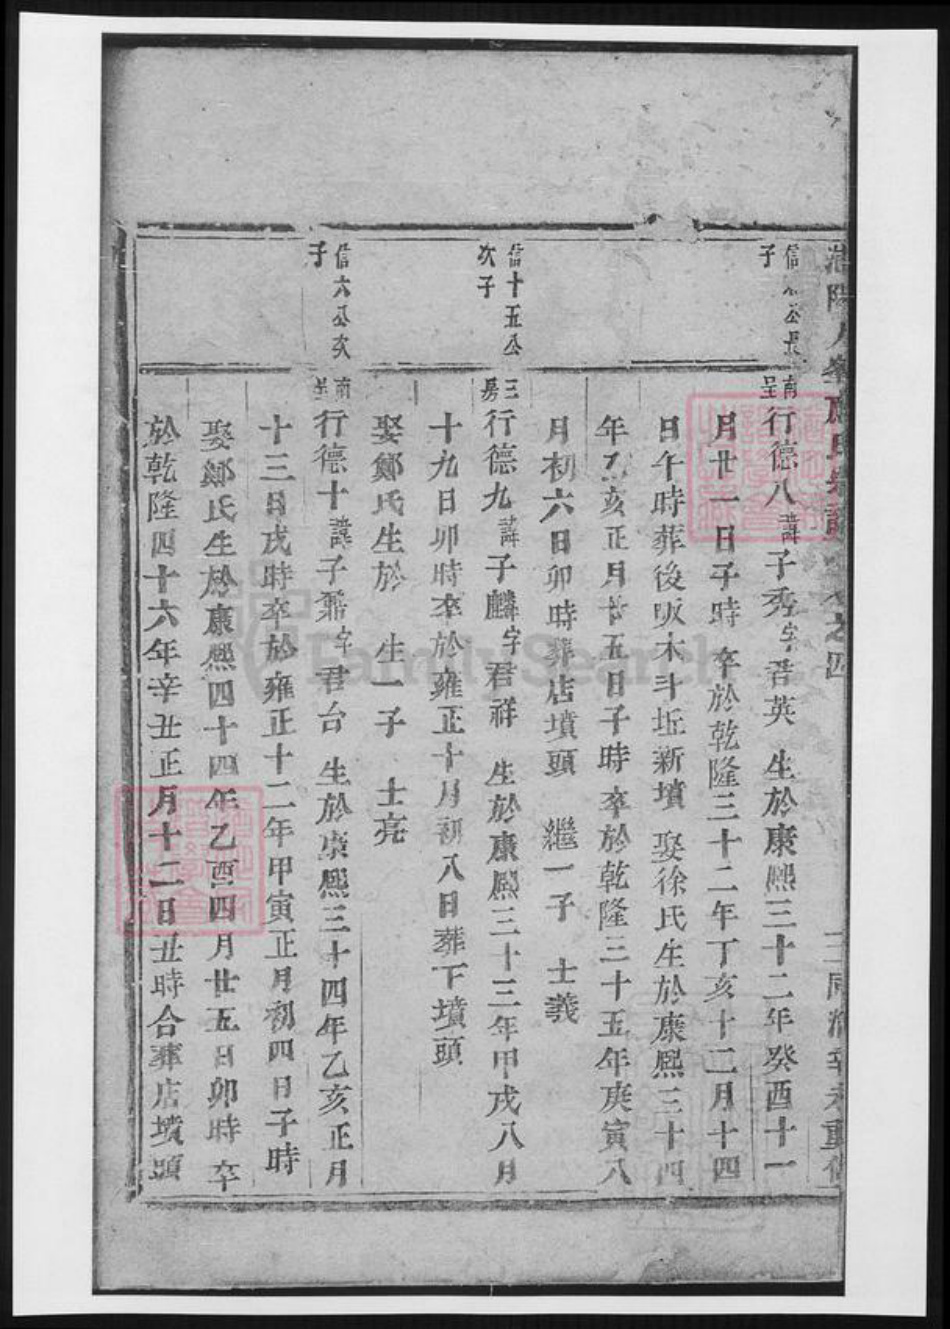 信 公長
子
南
呈
行德八諱子秀字晋英 生於康熙三十二年癸酉十一
月廿一日子時 卒於乾隆三十二年丁亥十二月十四
日午時葬後坂木斗坵新墳 娶徐氏生於康熙三十四
年乙亥正月廿五日子時卒於乾隆三十五年庚寅八
月初六日卯時葬店墳頭 繼一子 士義
信十五公
次子
三
房
行德九諱子麟字君祥 生於康熙三十三年甲戌八月
十九日卯時卒於雍正十月初八日葬下墳頭
娶鄭氏生於 生一子 士亮
信六公次
子
南
呈
行德十諱子鼐字君台 生於康熙三十四年乙亥正月
十三日戌時卒於雍正十二年甲寅正月初四日子時
娶鄭氏生於康熙四十四年乙酉四月廿五日卯時卒
於乾隆四十六年辛丑正月十二日丑時合葬店墳頭
FamilySearch